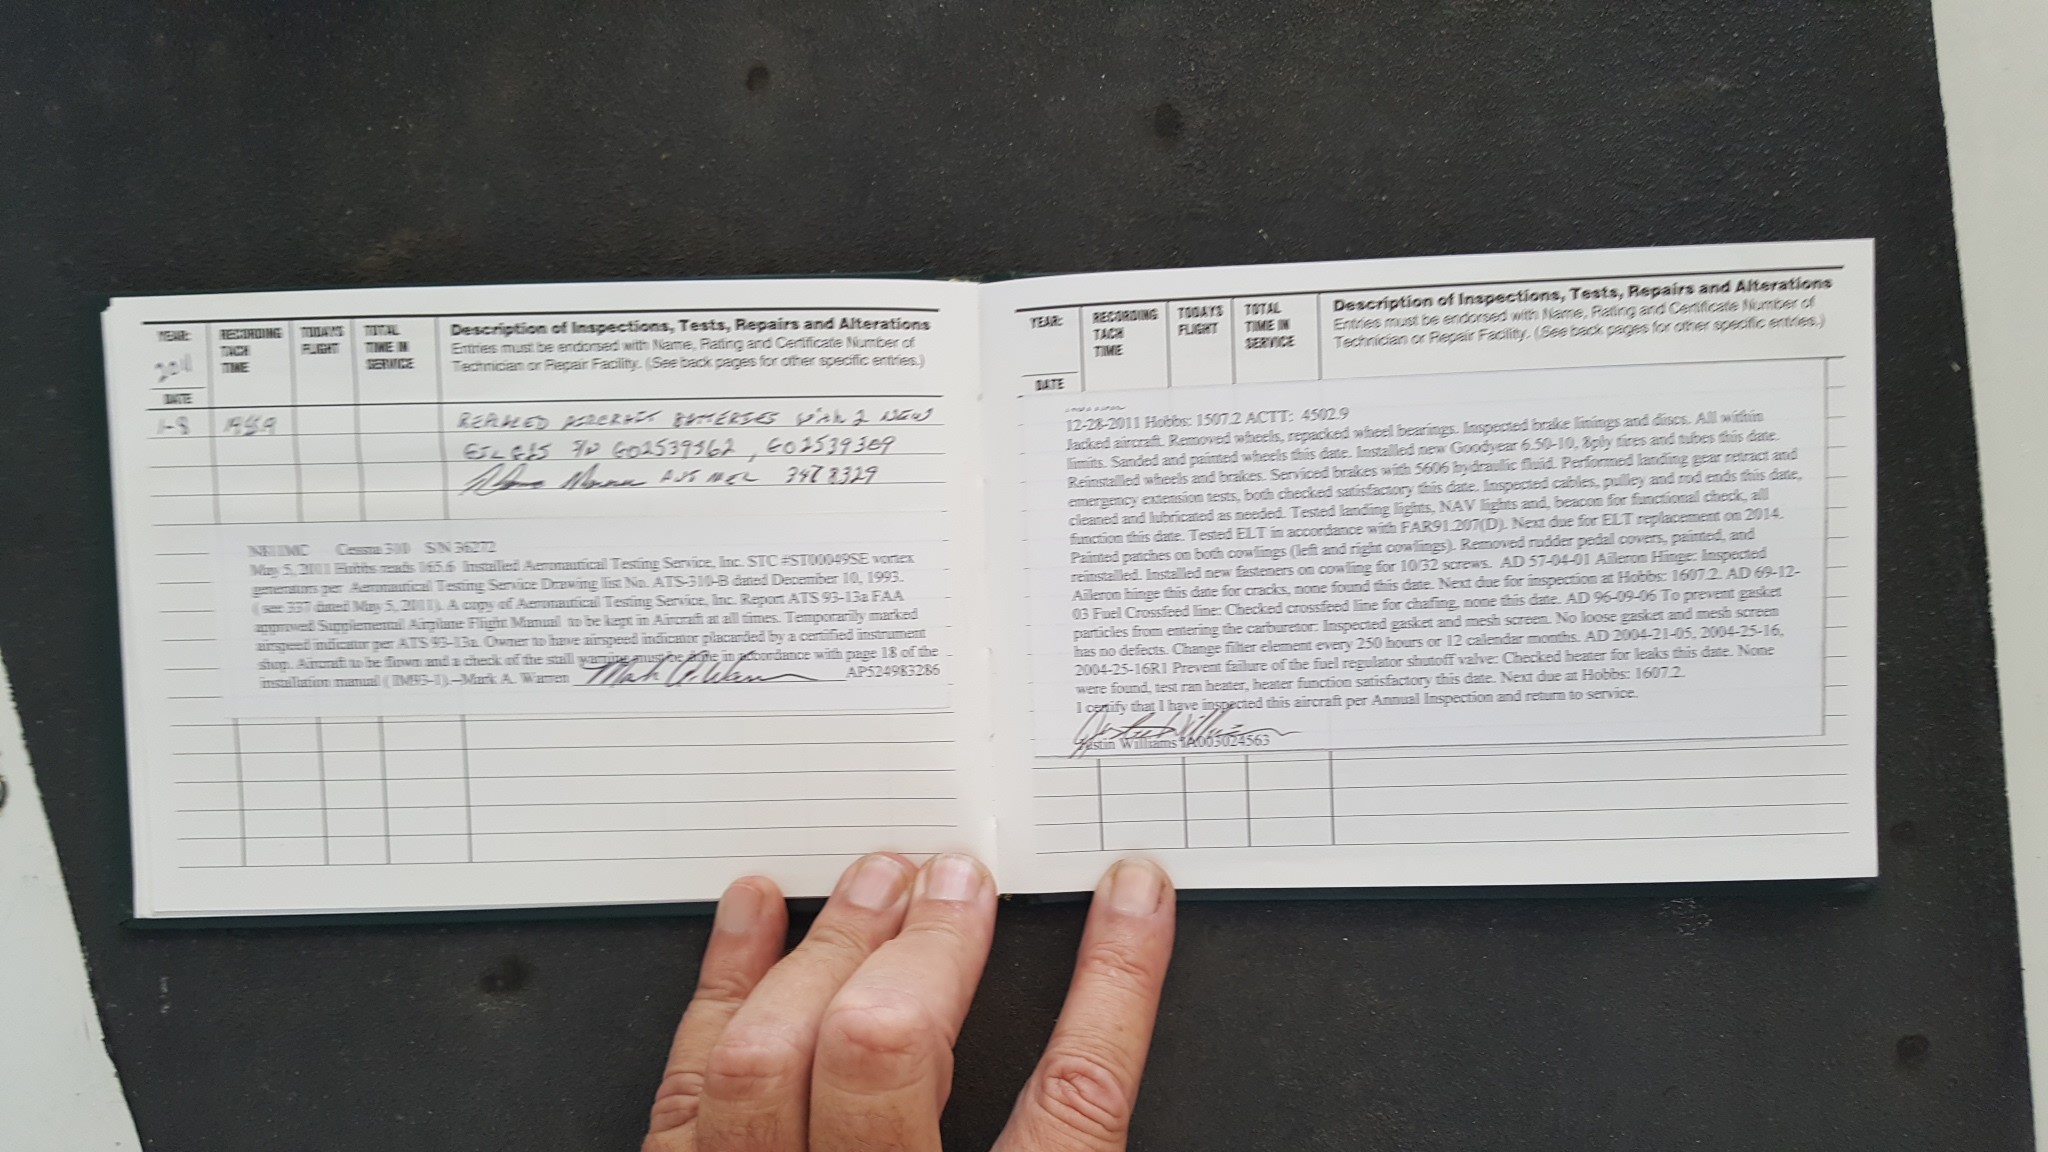 YEAR:
2011
DATE
RECORDING
TACH
TIME
TODAYS
FLIGHT
TOTAL
TIME IN
SERVICE
Description of Inspections, Tests, Repairs and Alterations
Entries must be endorsed with Name, Rating and Certificate Number of
Technician or Repair Facility. (See back pages for other specific entries.)
1-8
REPLACED AIRCRAFT BATTERIES WITH 2 NEW
S/N G02539562, G02539309
3478329
Cessna 310 S/N 36272
May 5, 2011 Hobbs reads 165.6 Installed Aeronautical Testing Service, Inc. STC #ST00049SE vortex
generators per Aeronautical Testing Service Drawing list No. ATS-310-B dated December 10, 1993.
( see 337 dated May 5, 2011). A copy of Aeronautical Testing Service, Inc. Report ATS 93-13a FAA
approved Supplemental Airplane Flight Manual to be kept in Aircraft at all times. Temporarily marked
airspeed indicator per ATS 93-13a. Owner to have airspeed indicator placarded by a certified instrument
shop. Aircraft to be flown and a check of the stall warning must be done in accordance with page 18 of the
installation manual ( IM93-1).--Mark A. Warren AP524983286
YEAR:
DATE
RECORDING
TACH
TIME
TODAYS
FLIGHT
TOTAL
TIME IN
SERVICE
Description of Inspections, Tests, Repairs and Alterations
Entries must be endorsed with Name, Rating and Certificate Number of
Technician or Repair Facility. (See back pages for other specific entries.)
12-28-2011 Hobbs: 1507.2 ACTT: 4502.9
Jacked aircraft. Removed wheels, repacked wheel bearings. Inspected brake linings and discs. All within
limits. Sanded and painted wheels this date. Installed new Goodyear 6.50-10, 8ply tires and tubes this date.
Reinstalled wheels and brakes. Serviced brakes with 5606 hydraulic fluid. Performed landing gear retract and
emergency extension tests, both checked satisfactory this date. Inspected cables, pulley and rod ends this date,
cleaned and lubricated as needed. Tested landing lights, NAV lights and, beacon for functional check, all
function this date. Tested ELT in accordance with FAR91.207(D). Next due for ELT replacement on 2014.
Painted patches on both cowlings (left and right cowlings). Removed rudder pedal covers, painted, and
reinstalled. Installed new fasteners on cowling for 10/32 screws. AD 57-04-01 Aileron Hinge: Inspected
Aileron hinge this date for cracks, none found this date. Next due for inspection at Hobbs: 1607.2. AD 69-12-
03 Fuel Crossfeed line: Checked crossfeed line for chafing, none this date. AD 96-09-06 To prevent gasket
particles from entering the carburetor: Inspected gasket and mesh screen. No loose gasket and mesh screen
has no defects. Change filter element every 250 hours or 12 calendar months. AD 2004-21-05, 2004-25-16,
2004-25-16R1 Prevent failure of the fuel regulator shutoff valve: Checked heater for leaks this date. None
were found, test ran heater, heater function satisfactory this date. Next due at Hobbs: 1607.2.
I certify that I have inspected this aircraft per Annual Inspection and return to service.
Justin Williams IA003024563